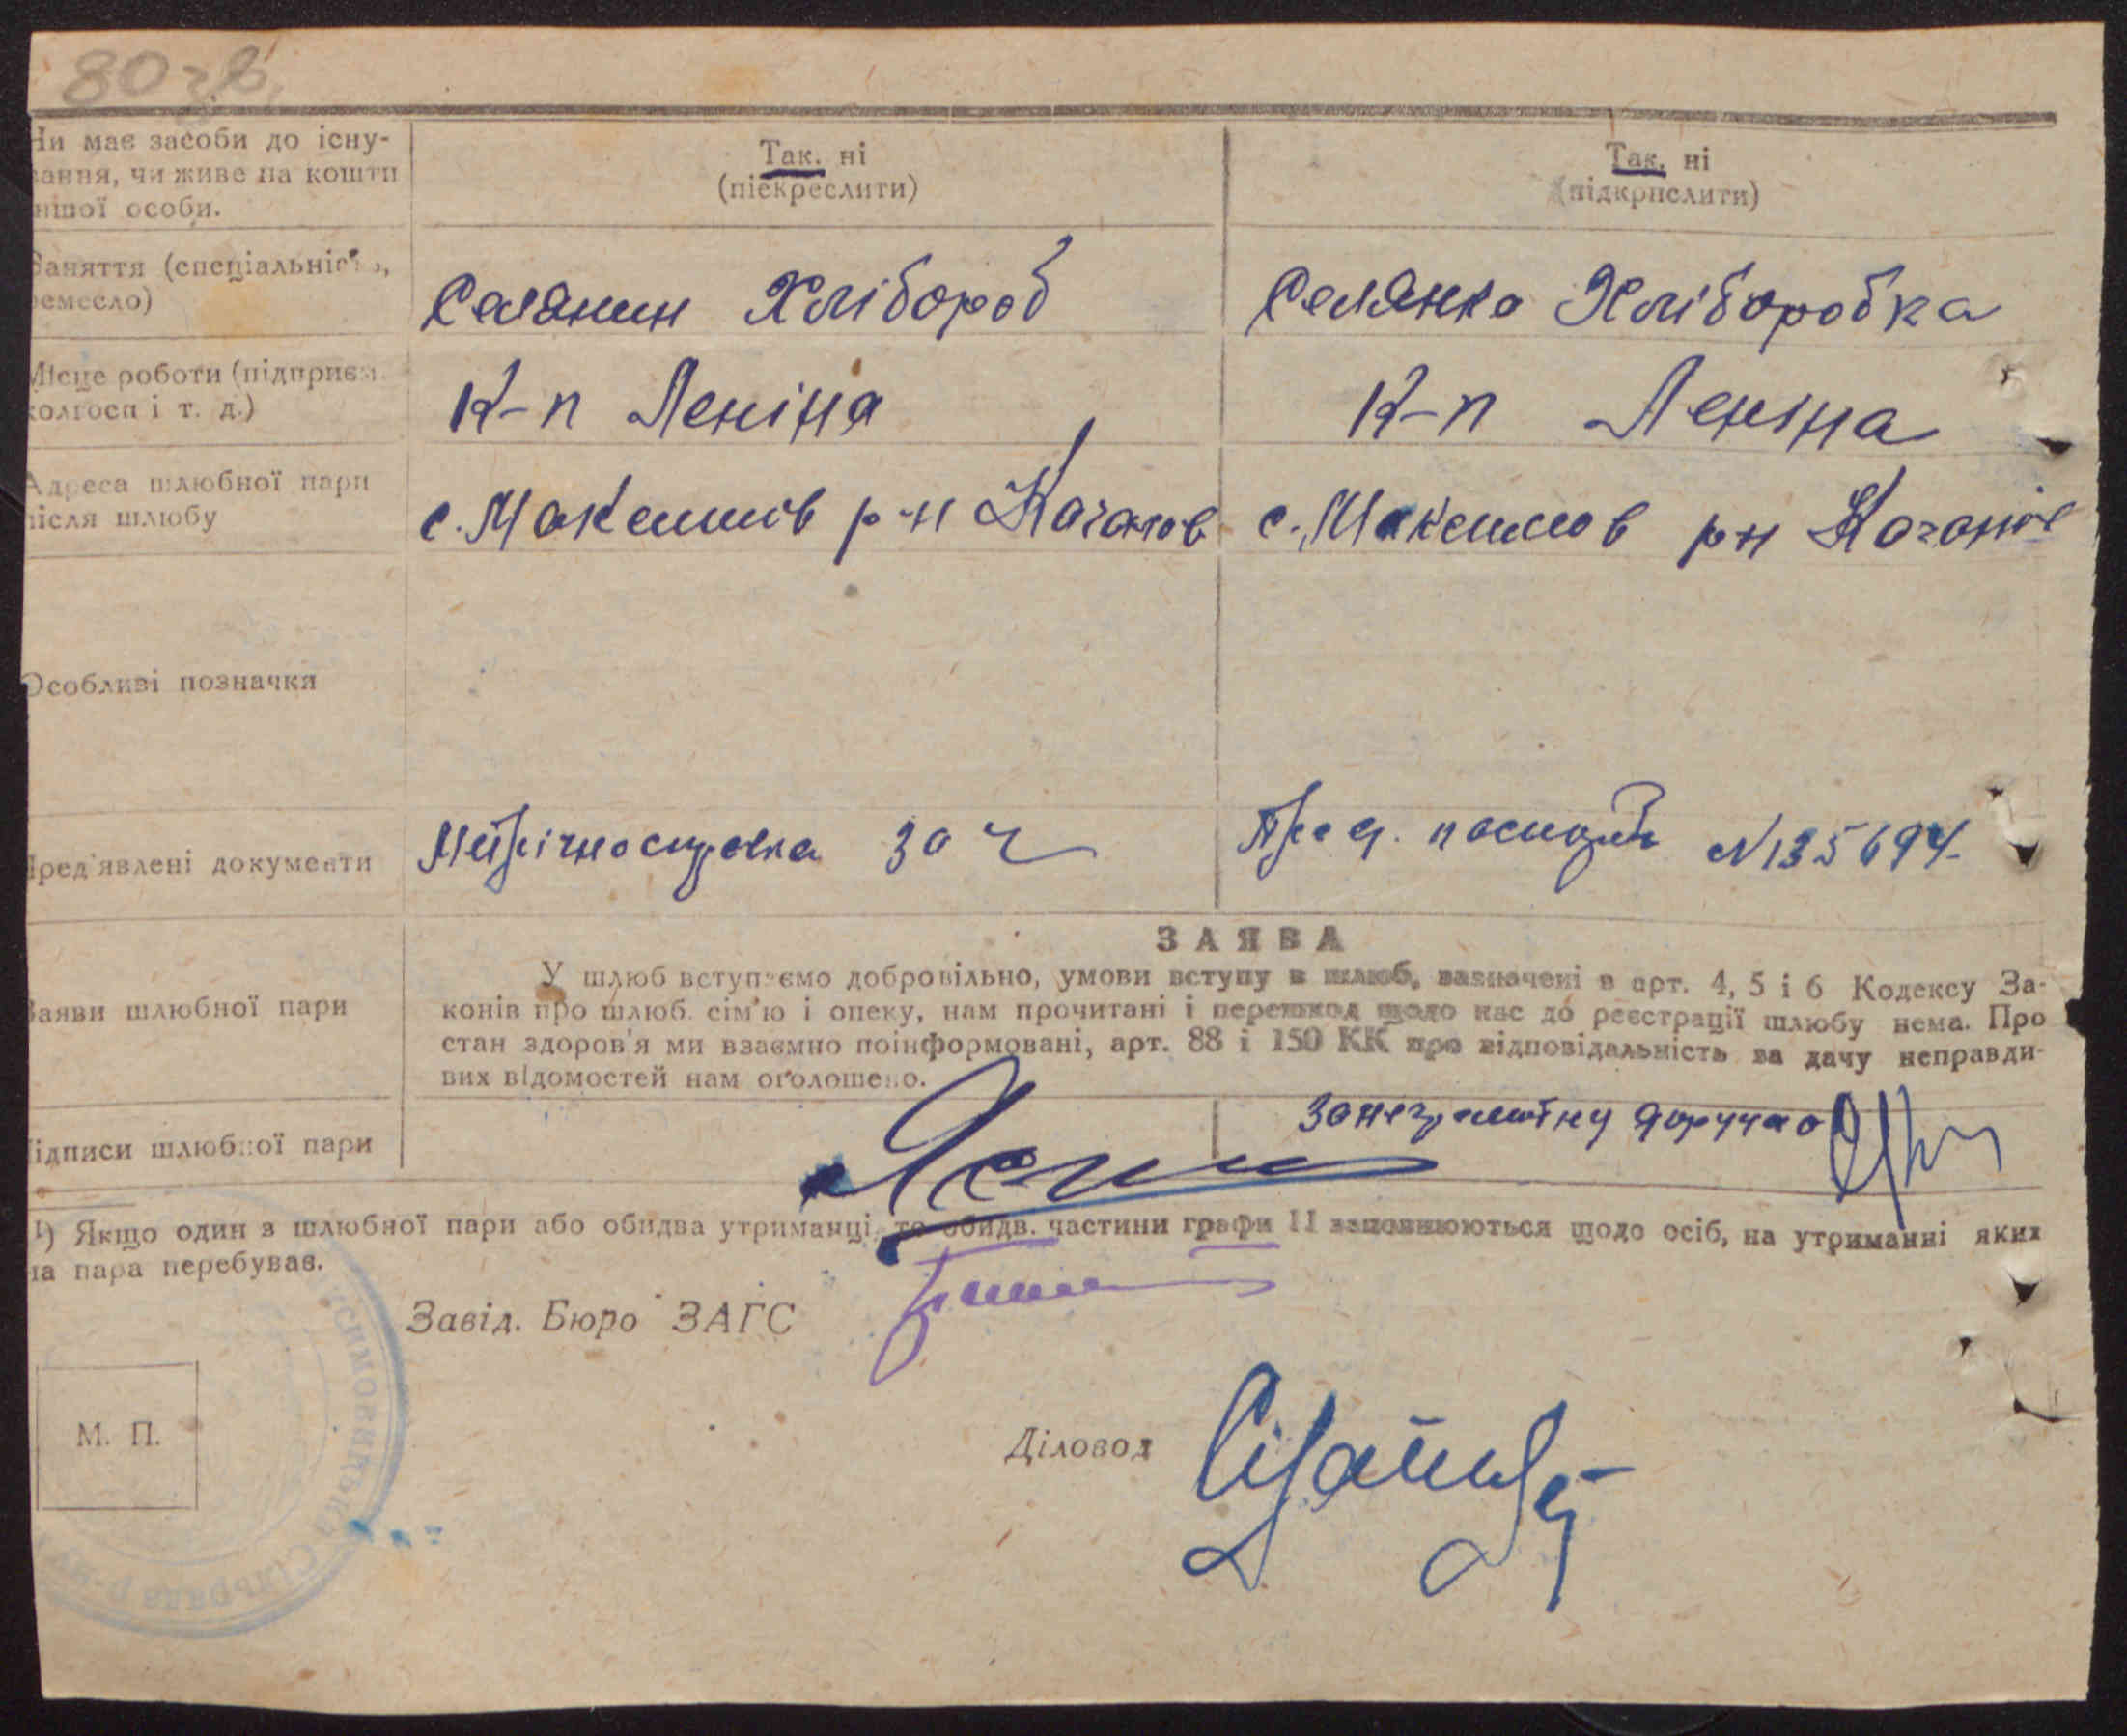 80 зв.
Чи має засоби до існу-
вання, чи живе на кошти
іншої особи.
Так. ні
(піекреслити)
Так. ні
(підкрислити)
Заняття (спеціальність,
ремесло)
Селянин Хлібороб
Селянка Хліборобка
Місце роботи (підприєм.
колгосп і т. д.)
К-п Леніна
К-п Леніна
Адреса шлюбної пари
після шлюбу
с. Максимів р-н Каганов
с. Максимов р-н Каганов
Особливі позначки
Пред'явлені документи
Метрічна справка
Пред. паспорт N 135694
ЗАЯВА
Заяви шлюбної пари
У шлюб вступаємо добровільно, умови вступу в шлюб, вазначені в арт. 4, 5 і 6 Кодексу За-
конів про шлюб. сім'ю і опеку, нам прочитані і перешкод щодо нас до реєстрації шлюбу нема. Про
стан здоров'я ми взаємно поінформовані, арт. 88 і 150 КК про відповідальність за дачу неправди-
вих відомостей нам оголошено.
Підписи шлюбної пари
За неграмотну доручаю
¹) Якщо один з шлюбної пари або обидва утриманці, то обидв. частини графи 11 заповнюються щодо осіб, на утриманні яких
ца пара перебував.
Завід. Бюро ЗАГС
Діловод
М. П.
сільрада р-ну